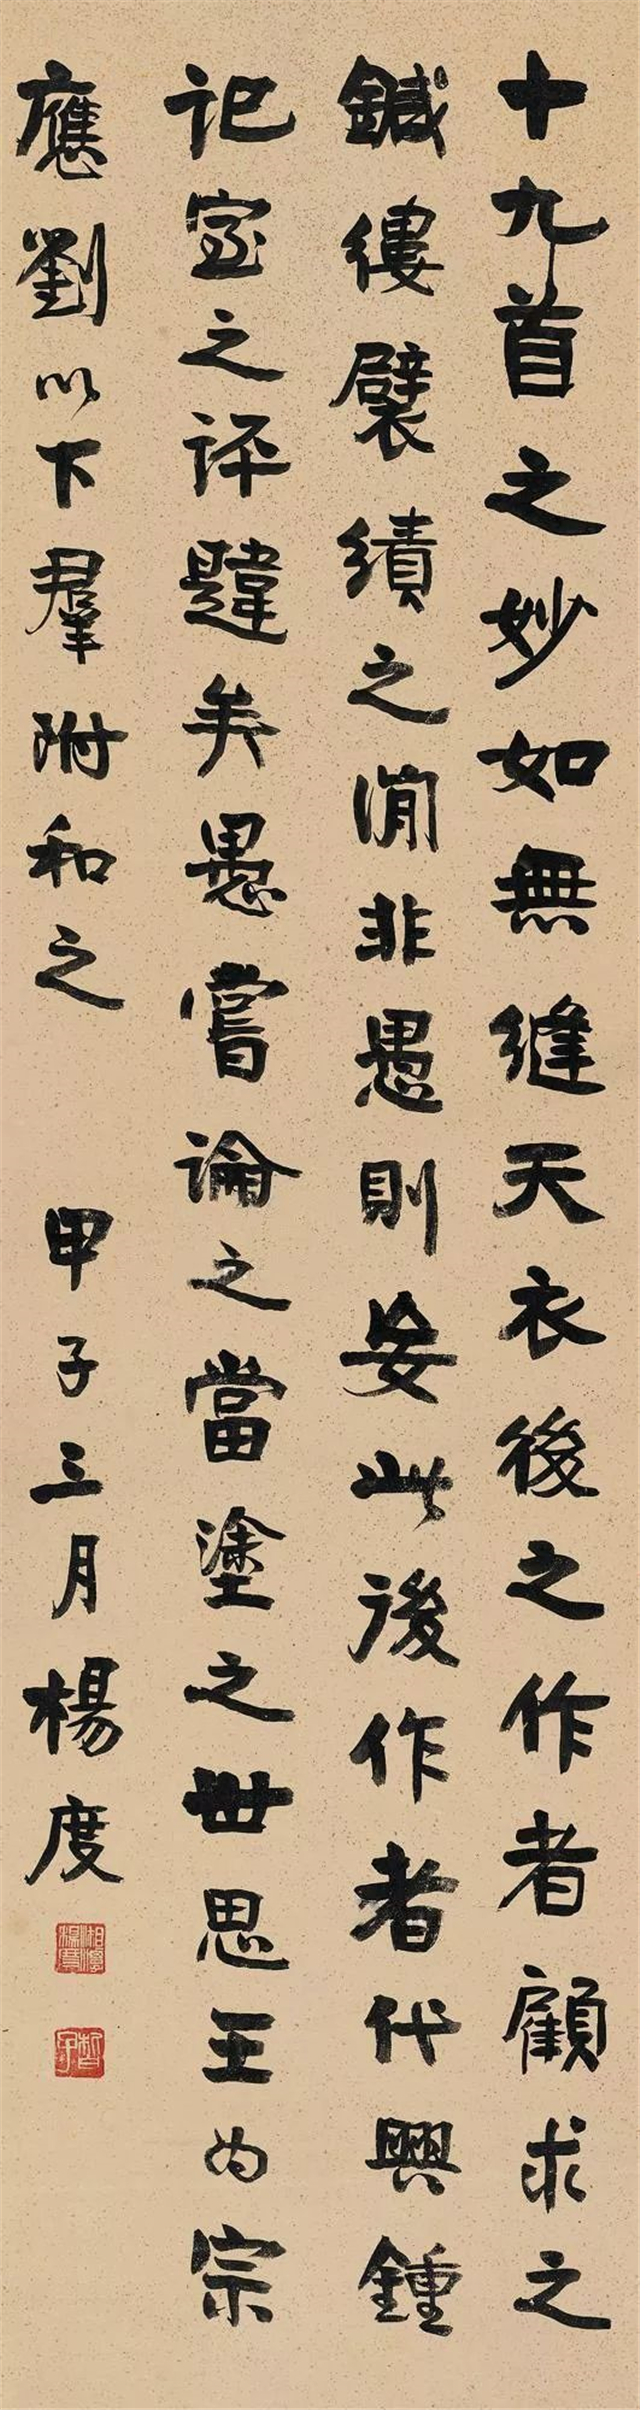 十九首之妙如無縫天衣後之作者顧求之
鍼縷襞績之間非愚則妄此後作者代興鍾
記室之評韙矣愚嘗論之當塗之世思王為宗
應劉以下羣附和之 甲子三月楊度
湘潭楊度
皙子